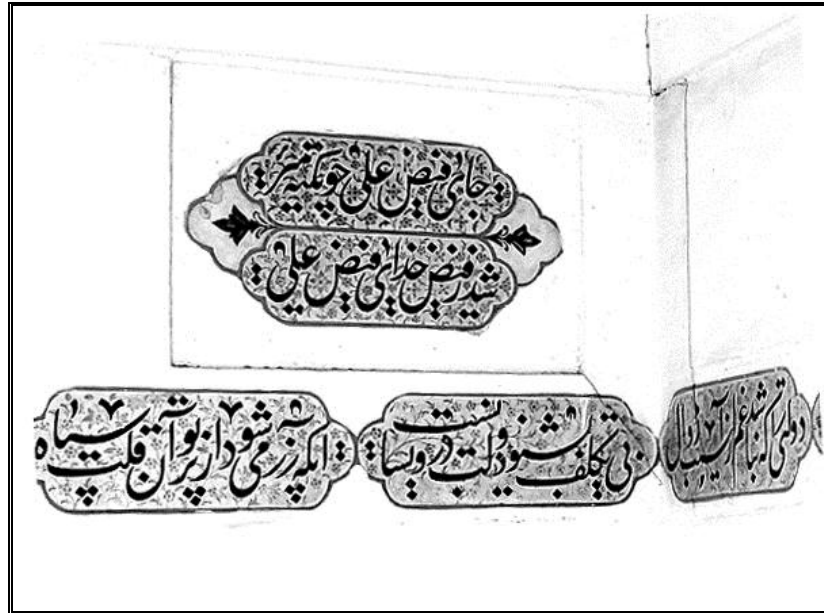 جای فیض علی چو تکیه میر
شد ز فیض خدای فیض علی
دولتی را که نباشد غم از آسیب زوال
بی تکلف بشنو دولت درویشانست
آنکه زر می شود از پرتو آن قلب سیاه